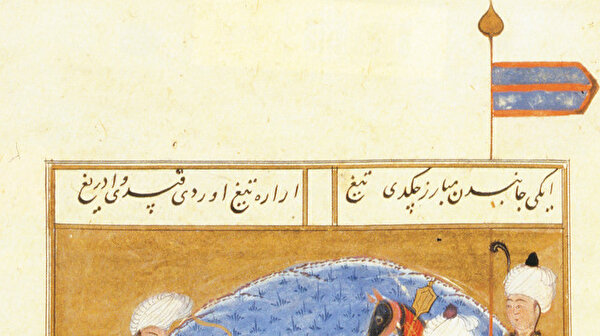 ایکی جانبدن مبارز چکدی تیغ
ار اره تیغ اوردی قیدی وادریغ